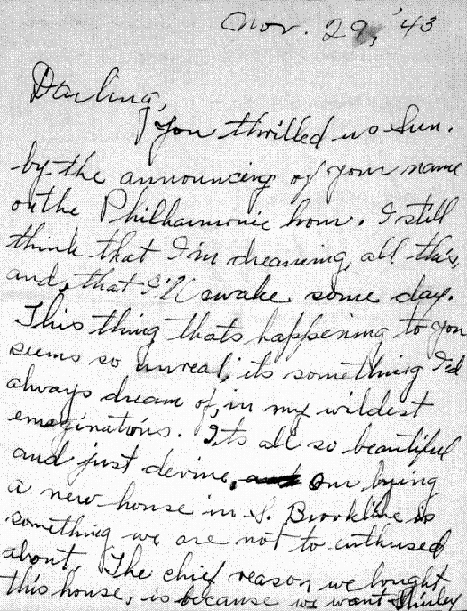 Nov. 29, '43
Darling,
You thrilled us Sun.
by the announcing of your name
on the Philharmonic hour. I still
think that I'm dreaming, all this,
and, that I'll awake some day.
This thing thats happening to you
seems so unreal, its something I'd
always dream of, in my wildest
emaginations. Its all so beautiful
and just devine, our bying
a new house in S. Brookline is
something we are not to enthused
about. The chief reason we bought
this house, is because we want Shirley